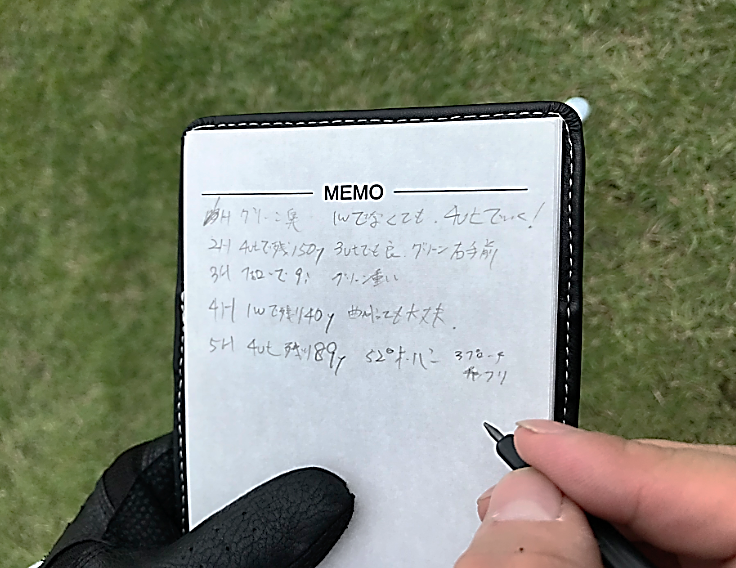 MEMO
1H グリーン奥 1Wでなくても、4utでいく!
2H 4utで残150y 3utでも良、グリーン右手前
3H フォローで9i グリーン重い
4H 1Wで残り140y 曲げても大丈夫。
5H 4ut 残り89y 52° オーバー